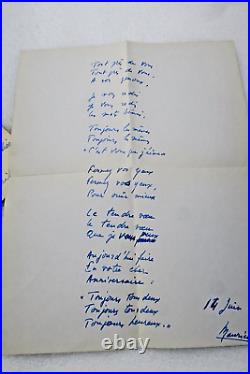 Tout près de vous
Tout près de vous.
A vos genoux.
Je vous redis
Je vous redis
les mots bénis.
Toujours les mêmes
Toujours les mêmes
"C'est vous que j'aime
Fermez vos yeux
Fermez vos yeux.
Pour mieux
Le tendre vœu
Le tendre vœu
Que je vous
Aujourd'hui faire
En votre cher
Anniversaire.
"Toujours tous deux
Toujours tous deux
Toujours heureux."
14 Juin
Maurice
www.couponrare.com